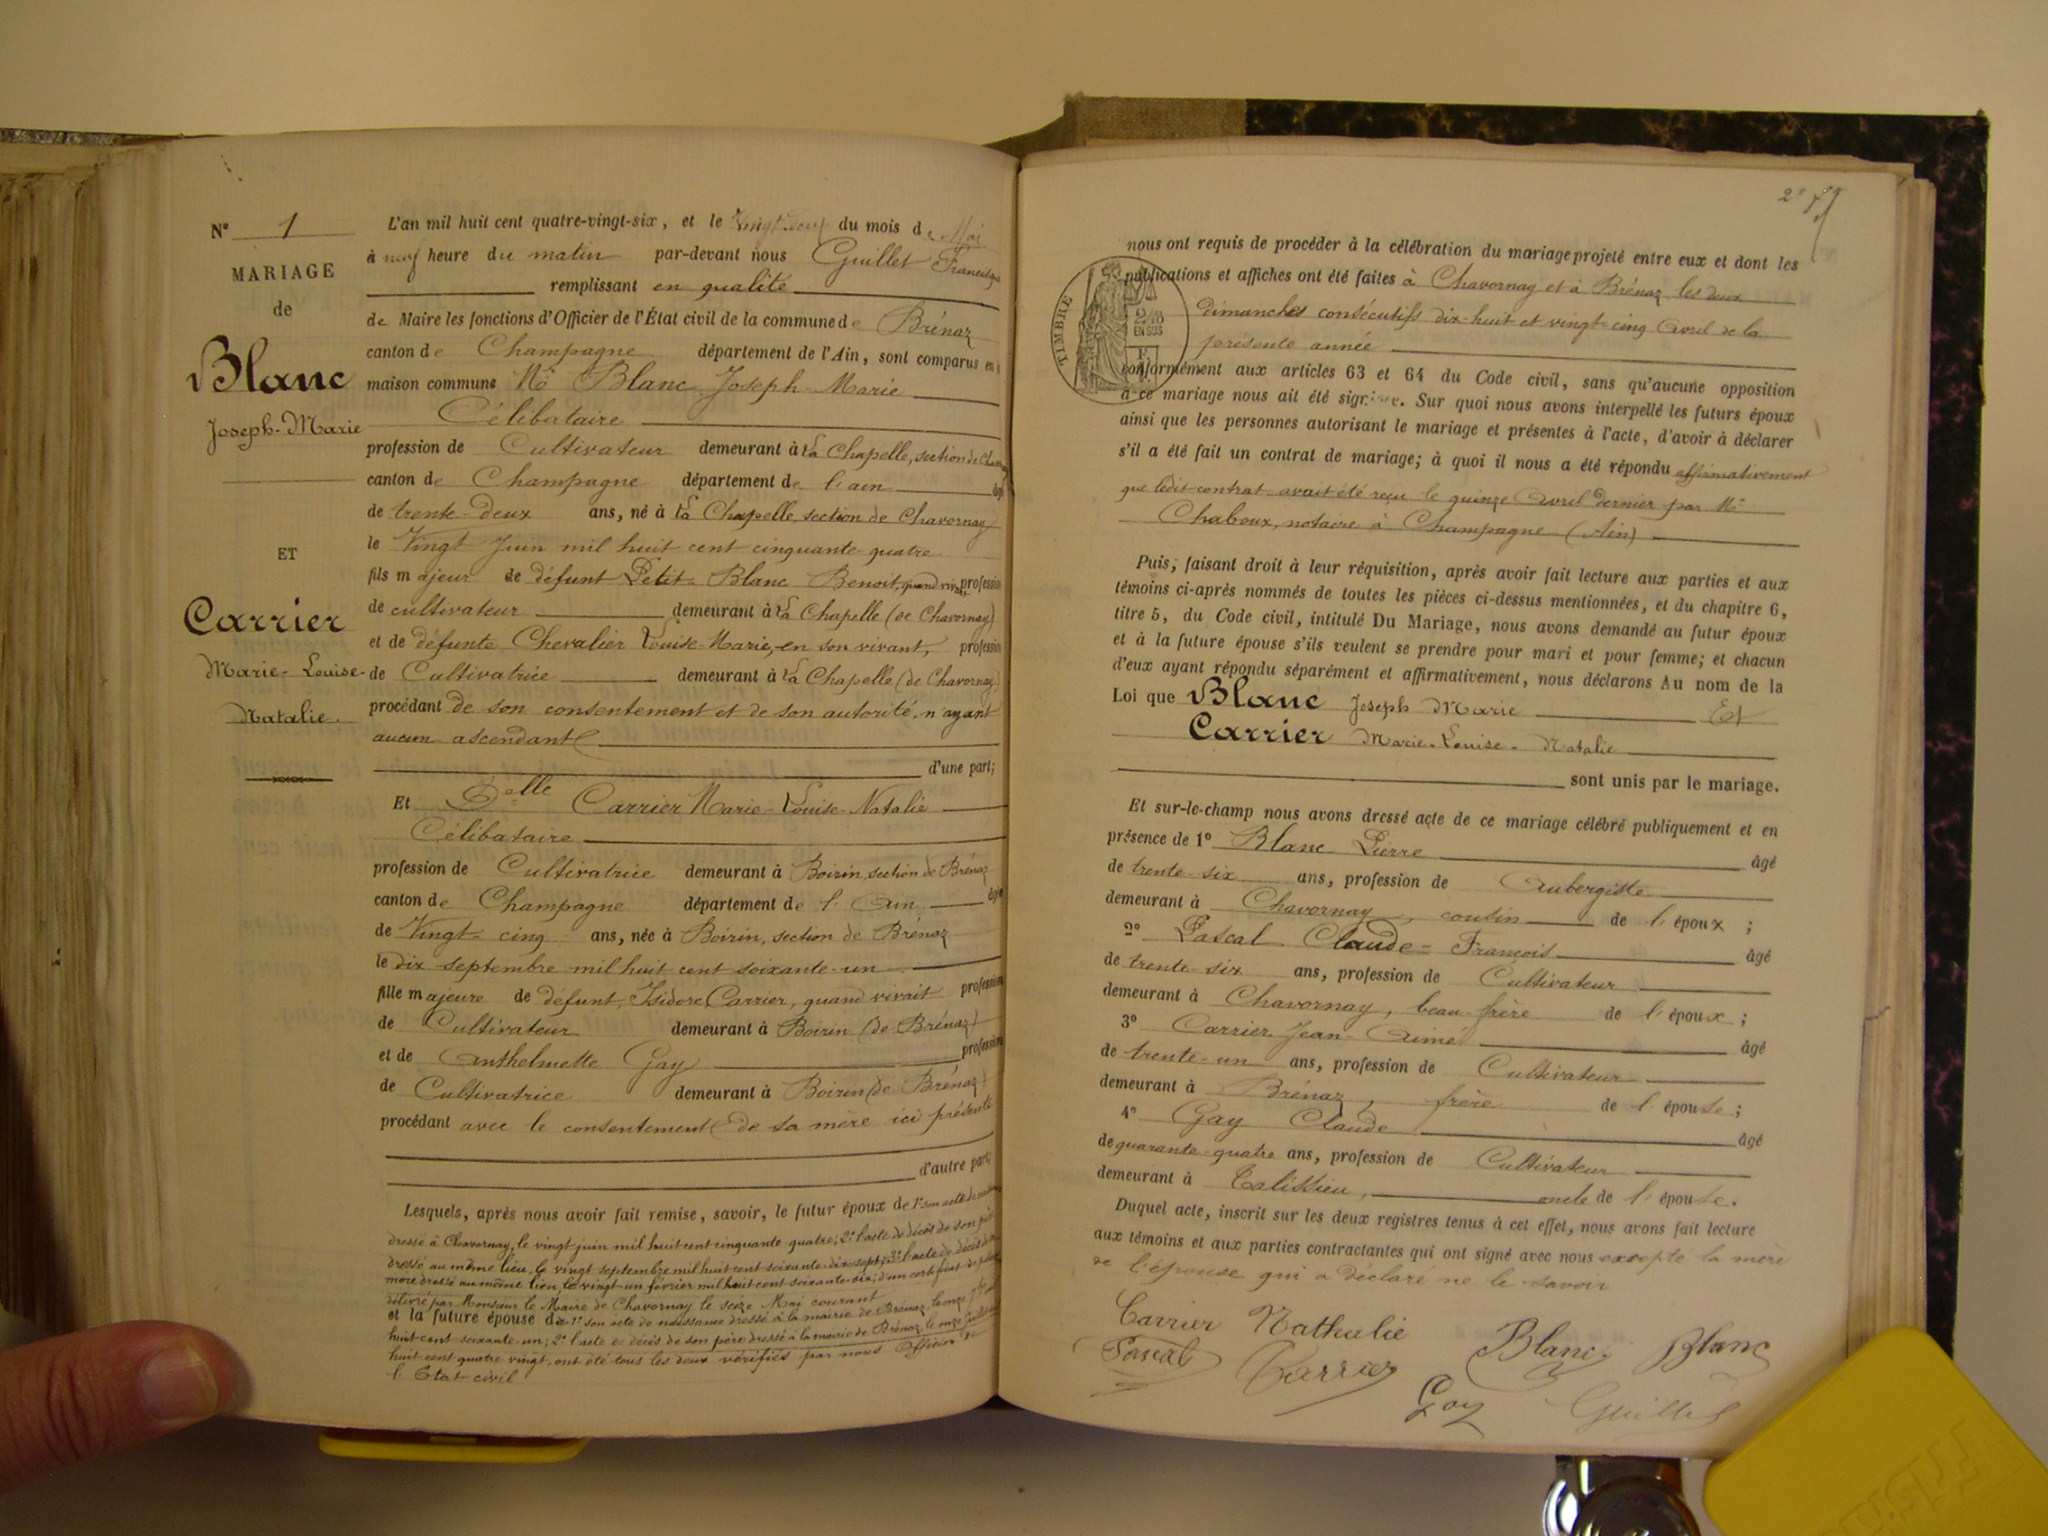 N° 1
MARIAGE
de
Blanc
Joseph-Marie
ET
Carrier
Marie-Louise-
Natalie.
L'an mil huit cent quatre-vingt-six, et le du mois de Mai
à neuf heure du matin par-devant nous Guillet
remplissant en qualité
de Maire les fonctions d'Officier de l'État civil de la commune de Brénaz
canton de Champagne département de l'Ain, sont comparus en
maison commune Mr Blanc Joseph-Marie
Célibataire
profession de Cultivateur demeurant à La Chapelle, section de
canton de Champagne département de l'ain
de trente-deux ans, né à La Chapelle, section de Chavornay
le Vingt Juin mil huit cent cinquante-quatre
fils majeur de défunt Petit-Blanc Benoit, quand profession
de cultivateur demeurant à La Chapelle (de Chavornay)
et de défunte Chevalier Louise-Marie, en son vivant, profession
de Cultivatrice demeurant à La Chapelle (de Chavornay)
procédant de son consentement et de son autorité, n'ayant
aucun ascendant
d'une part;
Et Delle Carrier Marie-Louise-Natalie
Célibataire
profession de Cultivatrice demeurant à Boirin, section de Brénaz
canton de Champagne département de l'Ain âgée
de Vingt-cinq ans, née à Boirin, section de Brénaz
le dix septembre mil huit cent soixante-un
fille majeure de défunt, Isidore Carrier, quand vivait profession
de Cultivateur demeurant à Boirin (de Brénaz)
et de Anthelmette Gay profession
de Cultivatrice demeurant à Boirin (de Brénaz)
procédant avec le consentement de sa mère ici présente
d'autre part;
Lesquels, après nous avoir fait remise, savoir, le futur époux de 1° son acte de
dressé à Chavornay, le vingt juin mil huit cent cinquante-quatre; 2° l'acte de décès de son père
dressé au même lieu, le vingt septembre mil huit cent soixante-dix-sept; 3° l'acte de décès de
mère dressé au même lieu, le vingt-un février mil huit cent soixante-six; d'un certificat de
délivré par Monsieur le Maire de Chavornay le seize Mai courant
et la future épouse de 1° son acte de naissance dressé à la mairie de Brénaz, le onze
huit cent soixante-un; 2° l'acte de décès de son père dressé à la mairie de Brénaz, le onze
huit cent quatre-vingt, ont été tous les deux vérifiés par nous officier de
l'État civil
TIMBRE
EN SUS
nous ont requis de procéder à la célébration du mariage projeté entre eux et dont les
publications et affiches ont été faites à Chavornay et à Brénaz les deux
dimanches consécutifs dix-huit et vingt-cinq Avril de la
présente année
conformément aux articles 63 et 64 du Code civil, sans qu'aucune opposition
à ce mariage nous ait été signifiée. Sur quoi nous avons interpellé les futurs époux
ainsi que les personnes autorisant le mariage et présentes à l'acte, d'avoir à déclarer
s'il a été fait un contrat de mariage; à quoi il nous a été répondu affirmativement
que ledit contrat avait été reçu le quinze Avril dernier par Me
Chaboux, notaire à Champagne (Ain)
Puis, faisant droit à leur réquisition, après avoir fait lecture aux parties et aux
témoins ci-après nommés de toutes les pièces ci-dessus mentionnées, et du chapitre 6,
titre 5, du Code civil, intitulé Du Mariage, nous avons demandé au futur époux
et à la future épouse s'ils veulent se prendre pour mari et pour femme; et chacun
d'eux ayant répondu séparément et affirmativement, nous déclarons Au nom de la
Loi que Blanc Joseph Marie Et
Carrier Marie-Louise-Natalie
sont unis par le mariage.
Et sur-le-champ nous avons dressé acte de ce mariage célébré publiquement et en
présence de 1° Blanc Pierre âgé
de trente-six ans, profession de Aubergiste
demeurant à Chavornay, cousin de l'époux;
2° Pascal Claude-François âgé
de trente-six ans, profession de Cultivateur
demeurant à Chavornay, beau-frère de l'époux;
3° Carrier Jean-Aimé âgé
de trente-un ans, profession de Cultivateur
demeurant à Brénaz, frère de l'épouse;
4° Gay Claude âgé
de quarante-quatre ans, profession de Cultivateur
demeurant à Talissieu, oncle de l'épouse.
Duquel acte, inscrit sur les deux registres tenus à cet effet, nous avons fait lecture
aux témoins et aux parties contractantes qui ont signé avec nous excepté la mère
de l'épouse qui a déclaré ne le savoir
Carrier Nathalie Blanc Blanc
Pascal Carrier
Gay Guillet